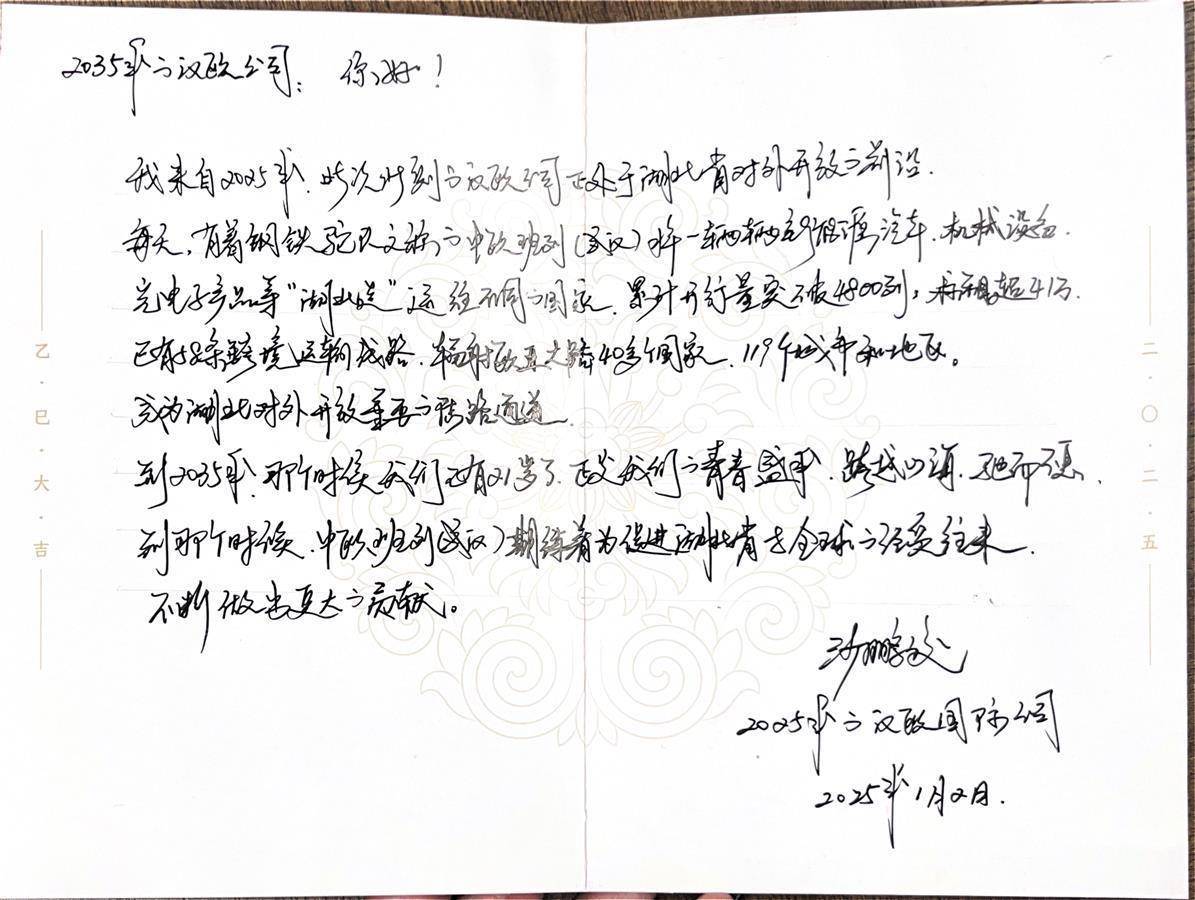 2035年的汉欧公司：你好！
我来自2025年，此次此刻的汉欧公司正处于湖北省对外开放的前沿。
每天，有着钢铁驼队之称的中欧班列（武汉）将一辆辆新能源汽车、机械设备
光电子产品等“湖北造”运往不同的国家，累计开行量突破4800列，超41万
已有58条跨境运输线路，辐射欧亚大陆40多个国家，119个城市和地区。
成为湖北对外开放重要的陆路通道
到2035年，那个时候我们已有21岁了，正是我们的青春盛年，跨越山海，驰而不息，
到那个时候，中欧班列（武汉）期待着为促进湖北省与全球的经贸往来
不断做出更大的贡献。
2025年的汉欧国际公司
2025年1月2日.
乙·巳·大·吉
二·〇·二·五